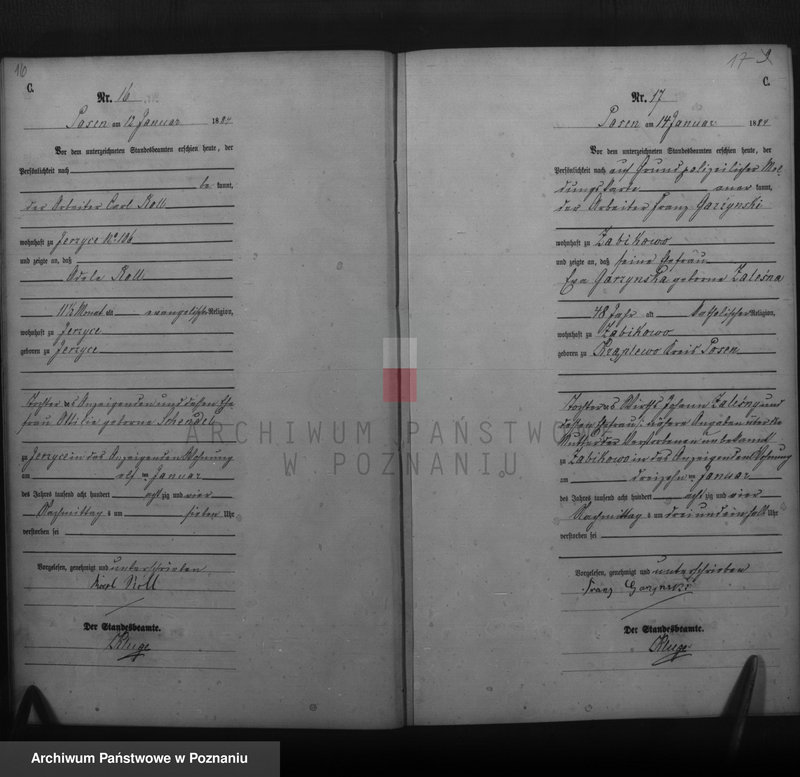 16
C.
Nr. 16
Posen am 12 Januar 1884
Vor dem unterzeichneten Standesbeamten erschien heute, der
Persönlichkeit nach
be kannt,
der Arbeiter Carl Noll
wohnhaft zu Jerzyce No 106
und zeigte an, daß
Adele Noll
11½ Monat alt evangelischer Religion,
wohnhaft zu Jerzyce
geboren zu Jerzyce
Tochter des Anzeigenden und dessen Ehe
frau Ottilie geborne Schendel
zu Jerzyce in des Anzeigenden Wohnung
am elf ten Januar
des Jahres tausend acht hundert acht zig und vier
Nachmittag s um sieben Uhr
verstorben sei
Vorgelesen, genehmigt und unterschrieben
Noll
Der Standesbeamte.
Kluge
17
C.
Nr. 17
Posen am 14 Januar 1884
Vor dem unterzeichneten Standesbeamten erschien heute, der
Persönlichkeit nach auf Grund polizeilicher Mel
dungskarte aner kannt,
der Arbeiter Franz Garzynski
wohnhaft zu Zabikowo
und zeigte an, daß seine Ehefrau
Eva Garzynska geborne Zalesna
48 Jahr alt katholischer Religion,
wohnhaft zu Zabikowo
geboren zu Kreis Posen
Tochter des Wirths Johann Zalesny und
dessen Ehefrau, nähere Angaben über die
Mutter der Verstorbenen unbekannt
zu Zabikowo in des Anzeigenden Wohnung
am dreizehn ten Januar
des Jahres tausend acht hundert acht zig und vier
Nachmittag s um drei und ein halb Uhr
verstorben sei
Vorgelesen, genehmigt und unterschrieben
Franz Garzynski
Der Standesbeamte.
Kluge
ARCHIWUM PAŃSTWOWE
W POZNANIU
Archiwum Państwowe w Poznaniu